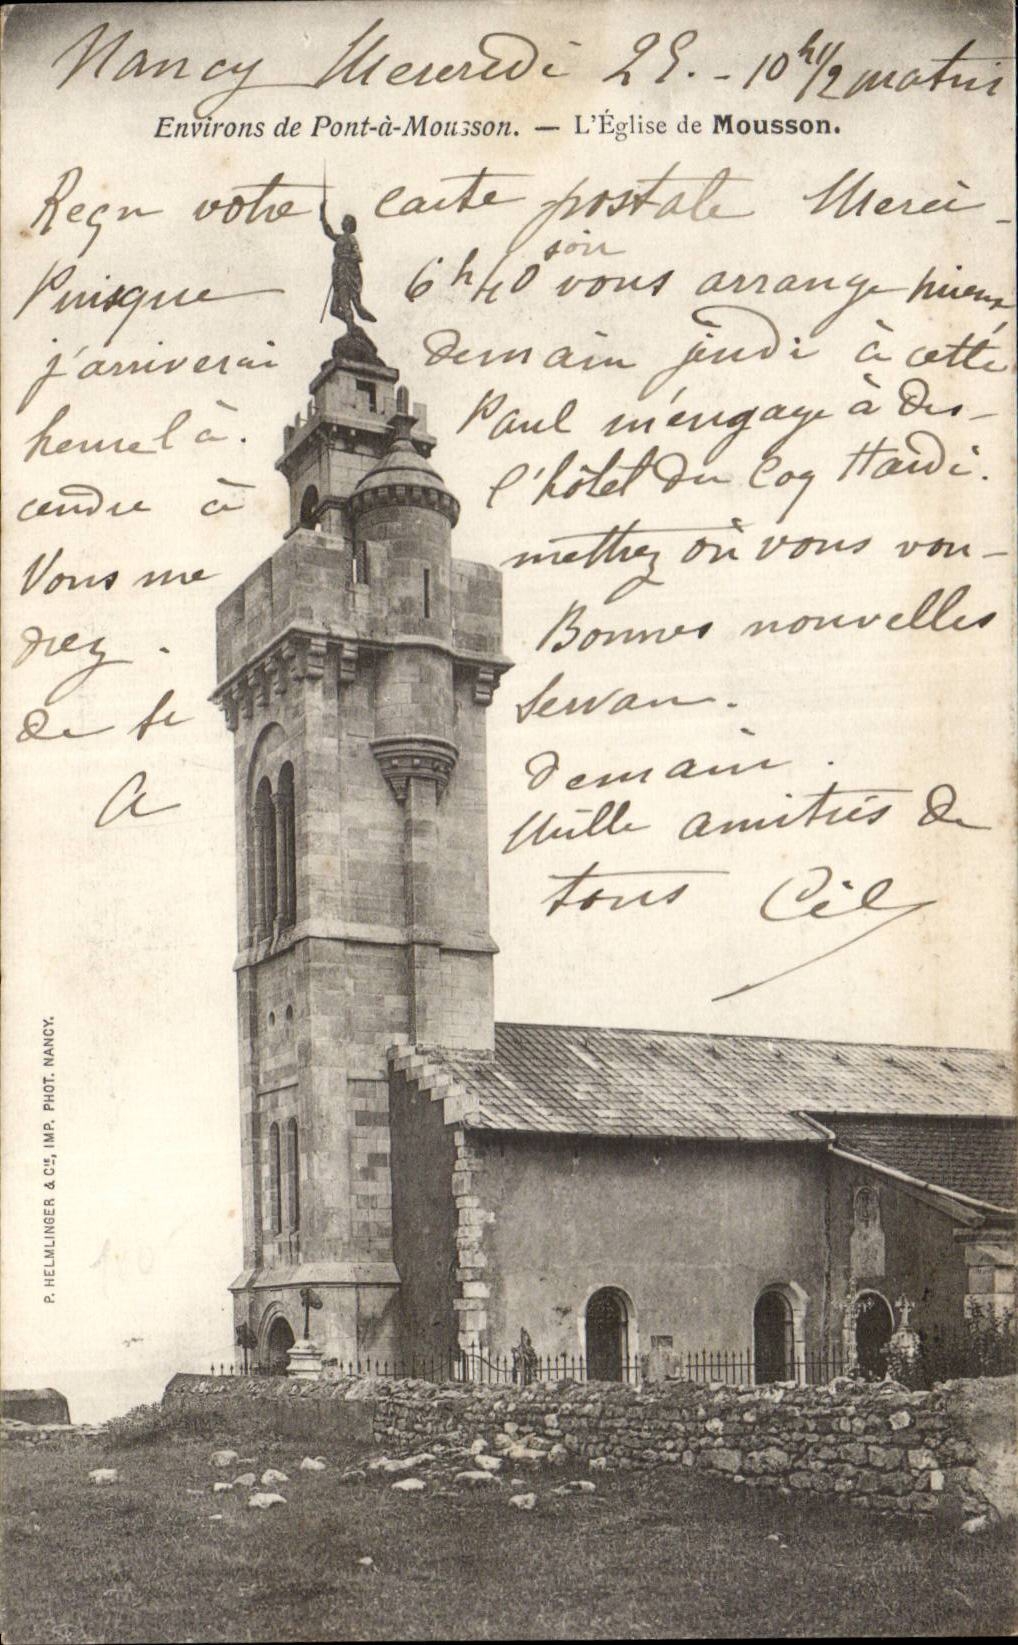 Nancy Mercredi 25. - 10 h 1/2 matin
Environs de Pont-à-Mousson. — L'Église de Mousson.
Reçu votre carte postale Merci -
Puisque 6 h 40 soir vous arrange mieux
j'arriverai demain jeudi à cette
heure là. Paul m'engage à des-
cendre à l'hôtel du Coq Hardi.
Vous me mettrez où vous vou-
drez. Bonnes nouvelles
de St Servan.
A demain.
Mille amitiés de
tous Cél
P. HELMLINGER & Cie, IMP. PHOT. NANCY.